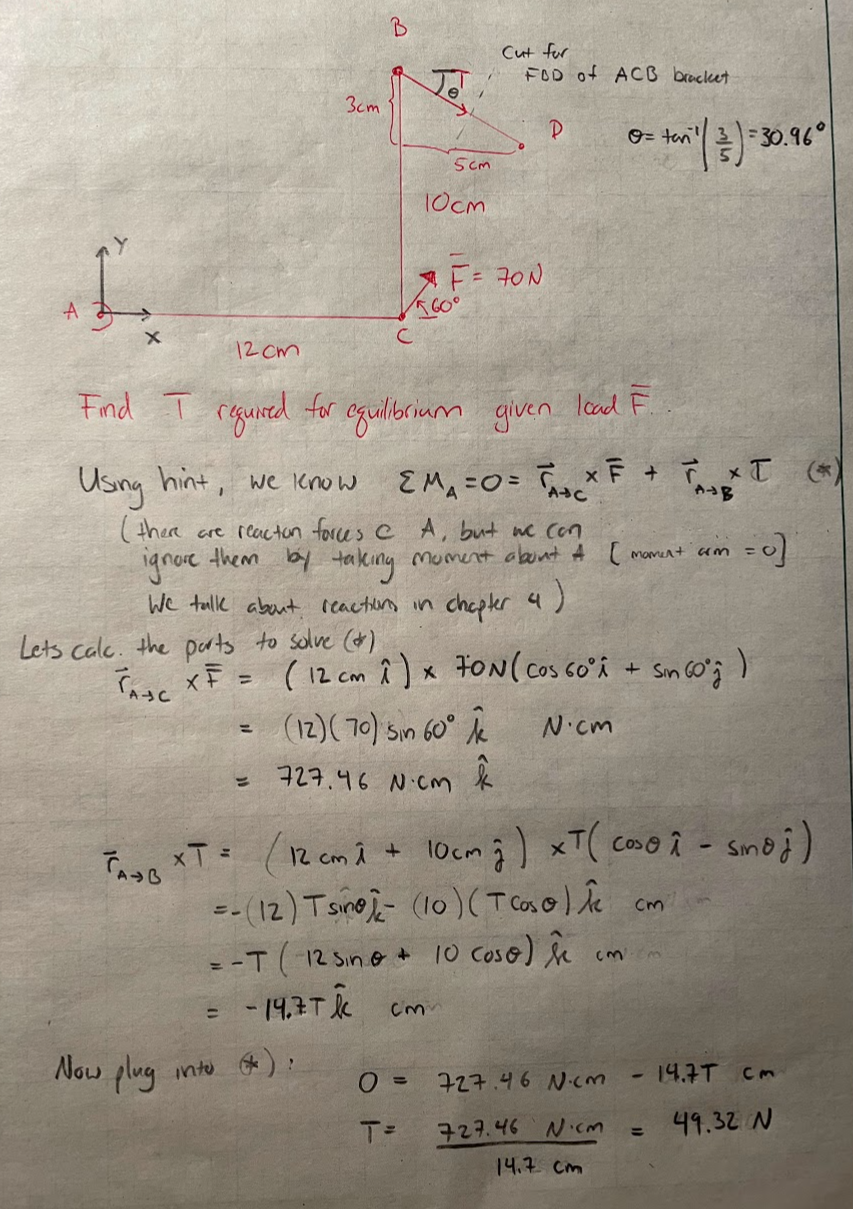 B
Cut for
FBD of ACB bracket
T
θ
3cm
D
θ= tan⁻¹(3/5)=30.96°
5cm
10cm
Y
F̅ = 70N
60°
A
X
C
12cm
Find T required for equilibrium given load F̅.
Using hint, we know ΣM_A=0= r⃗_A→C × F̅ + r⃗_A→B × T (*)
(there are reaction forces @ A, but we can
ignore them by taking moment about A [moment arm = 0]
We talk about reactions in chapter 4)
Lets calc. the parts to solve (*)
r⃗_A→C × F̅ = (12 cm î) × 70N(cos60°î + sin60°ĵ)
= (12)(70) sin 60° k̂ N·cm
= 727.46 N·cm k̂
r⃗_A→B × T = (12 cm î + 10cm ĵ) × T(cosθ î - sinθ ĵ)
=-(12)T sinθ k̂ - (10)(T cosθ) k̂ cm
= -T(12 sinθ + 10 cosθ) k̂ cm
= -14.7T k̂ cm
Now plug into (*):
0 = 727.46 N·cm - 14.7T cm
T= 727.46 N·cm / 14.7 cm = 49.32 N